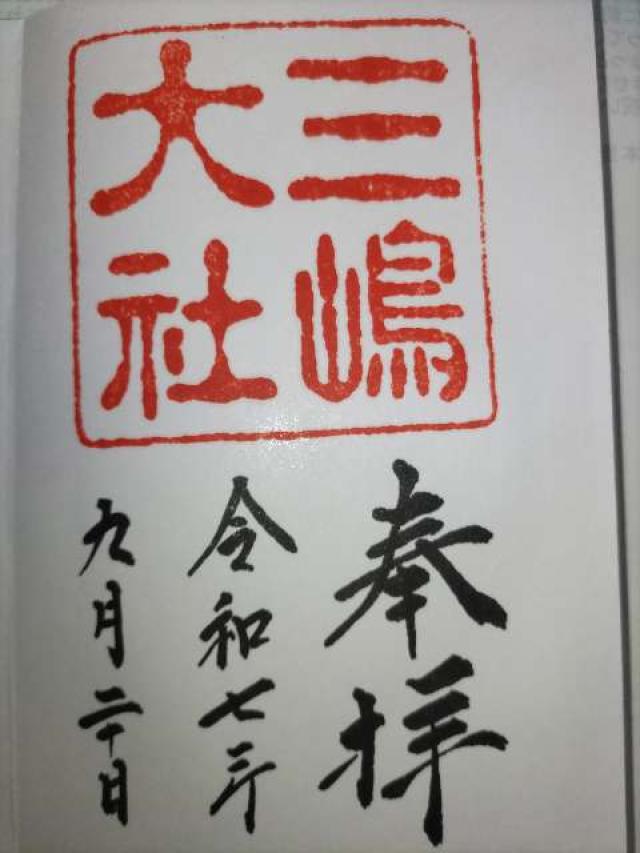 三嶋
大社
奉拝
令和七年
九月二十日